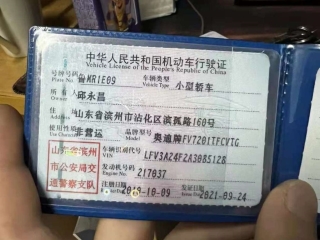 中华人民共和国机动车行驶证
Vehicle License of the People's Republic of China
号牌号码 鲁MR1E09 车辆类型 小型轿车
Plate No. Vehicle Type
所有人 邱永昌
住址 山东省滨州市沾化区滨孤路160号
使用性质 非营运 品牌型号 奥迪牌FV7201TFCVTG
Model
山东省滨州 车辆识别代号 LFV3A24F2A3085128
VIN
市公安局交 发动机号码 217037
Engine No.
通警察支队 注册日期 发证日期 2021-09-24